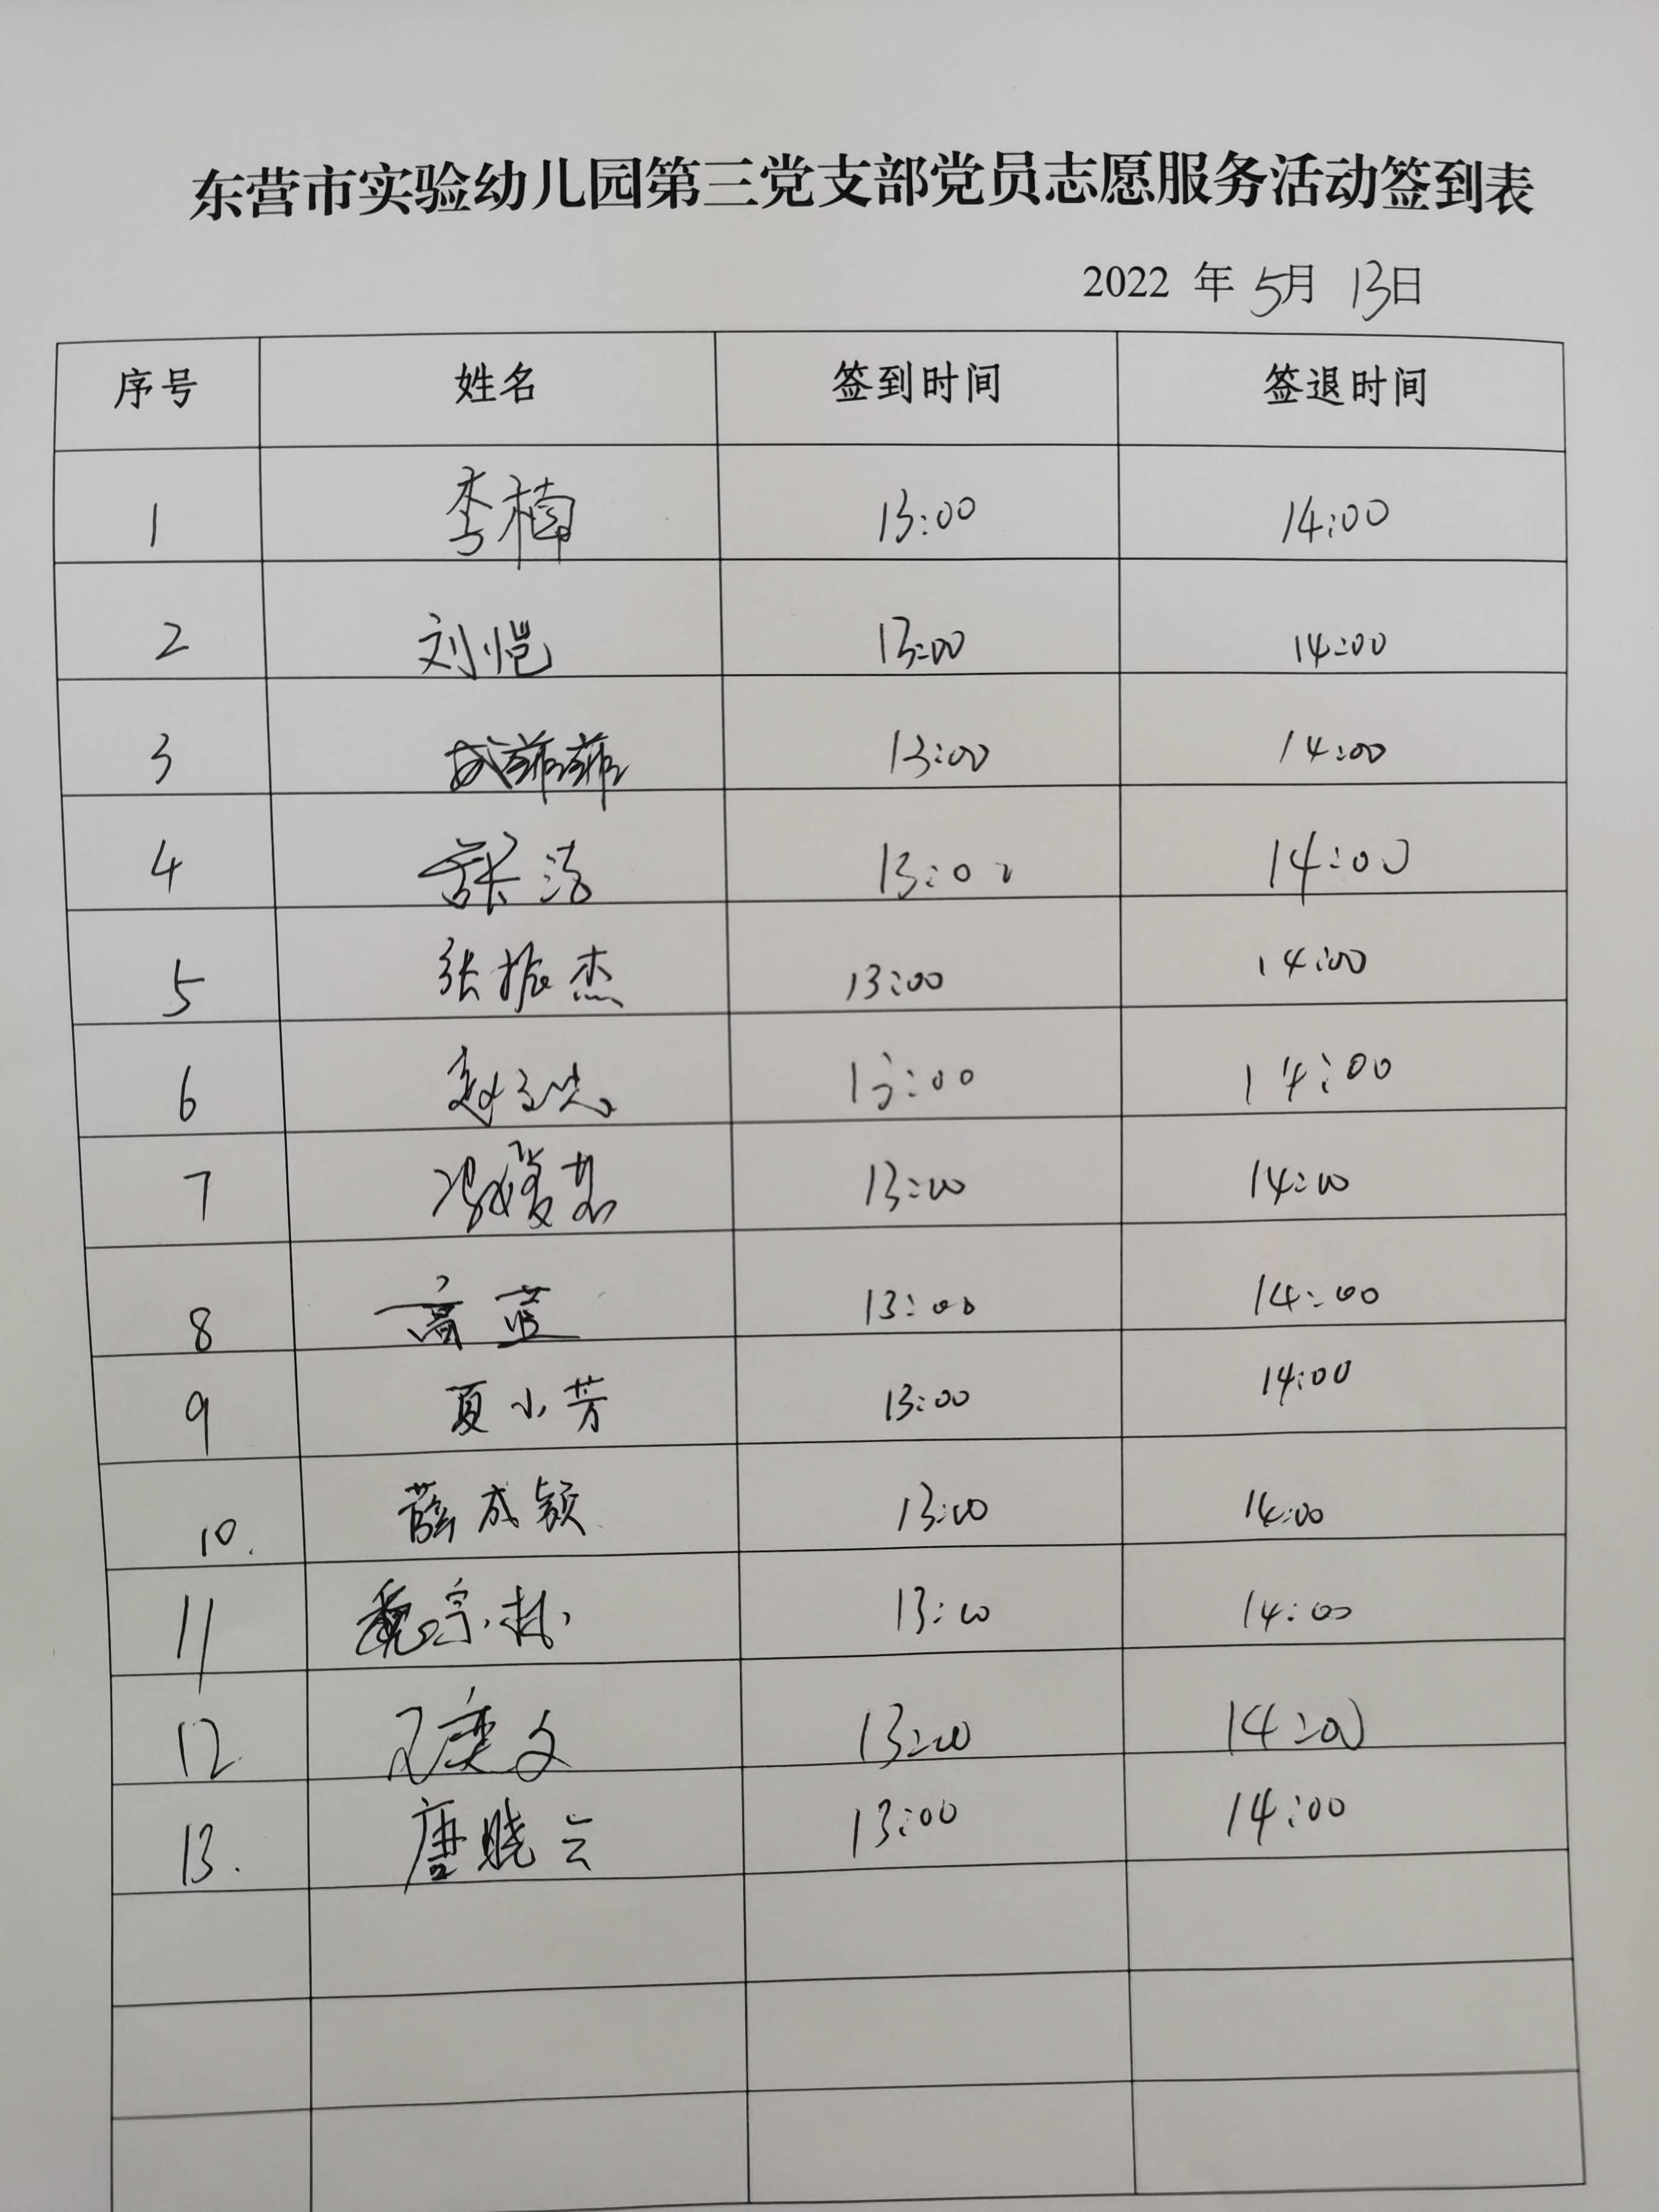 东营市实验幼儿园第三党支部党员志愿服务活动签到表
2022 年 5月 13日
序号 姓名 签到时间 签退时间
1 李楠 13:00 14:00
2 刘恺 13:00 14:00
3 13:00 14:00
4 13:00 14:00
5 张振杰 13:00 14:00
6 赵 13:00 14:00
7 冯媛 13:00 14:00
8 高蓝 13:00 14:00
9 夏小芳 13:00 14:00
10. 薛成颖 13:00 14:00
11 魏宗林 13:00 14:00
12 13:00 14:00
13. 唐晓云 13:00 14:00